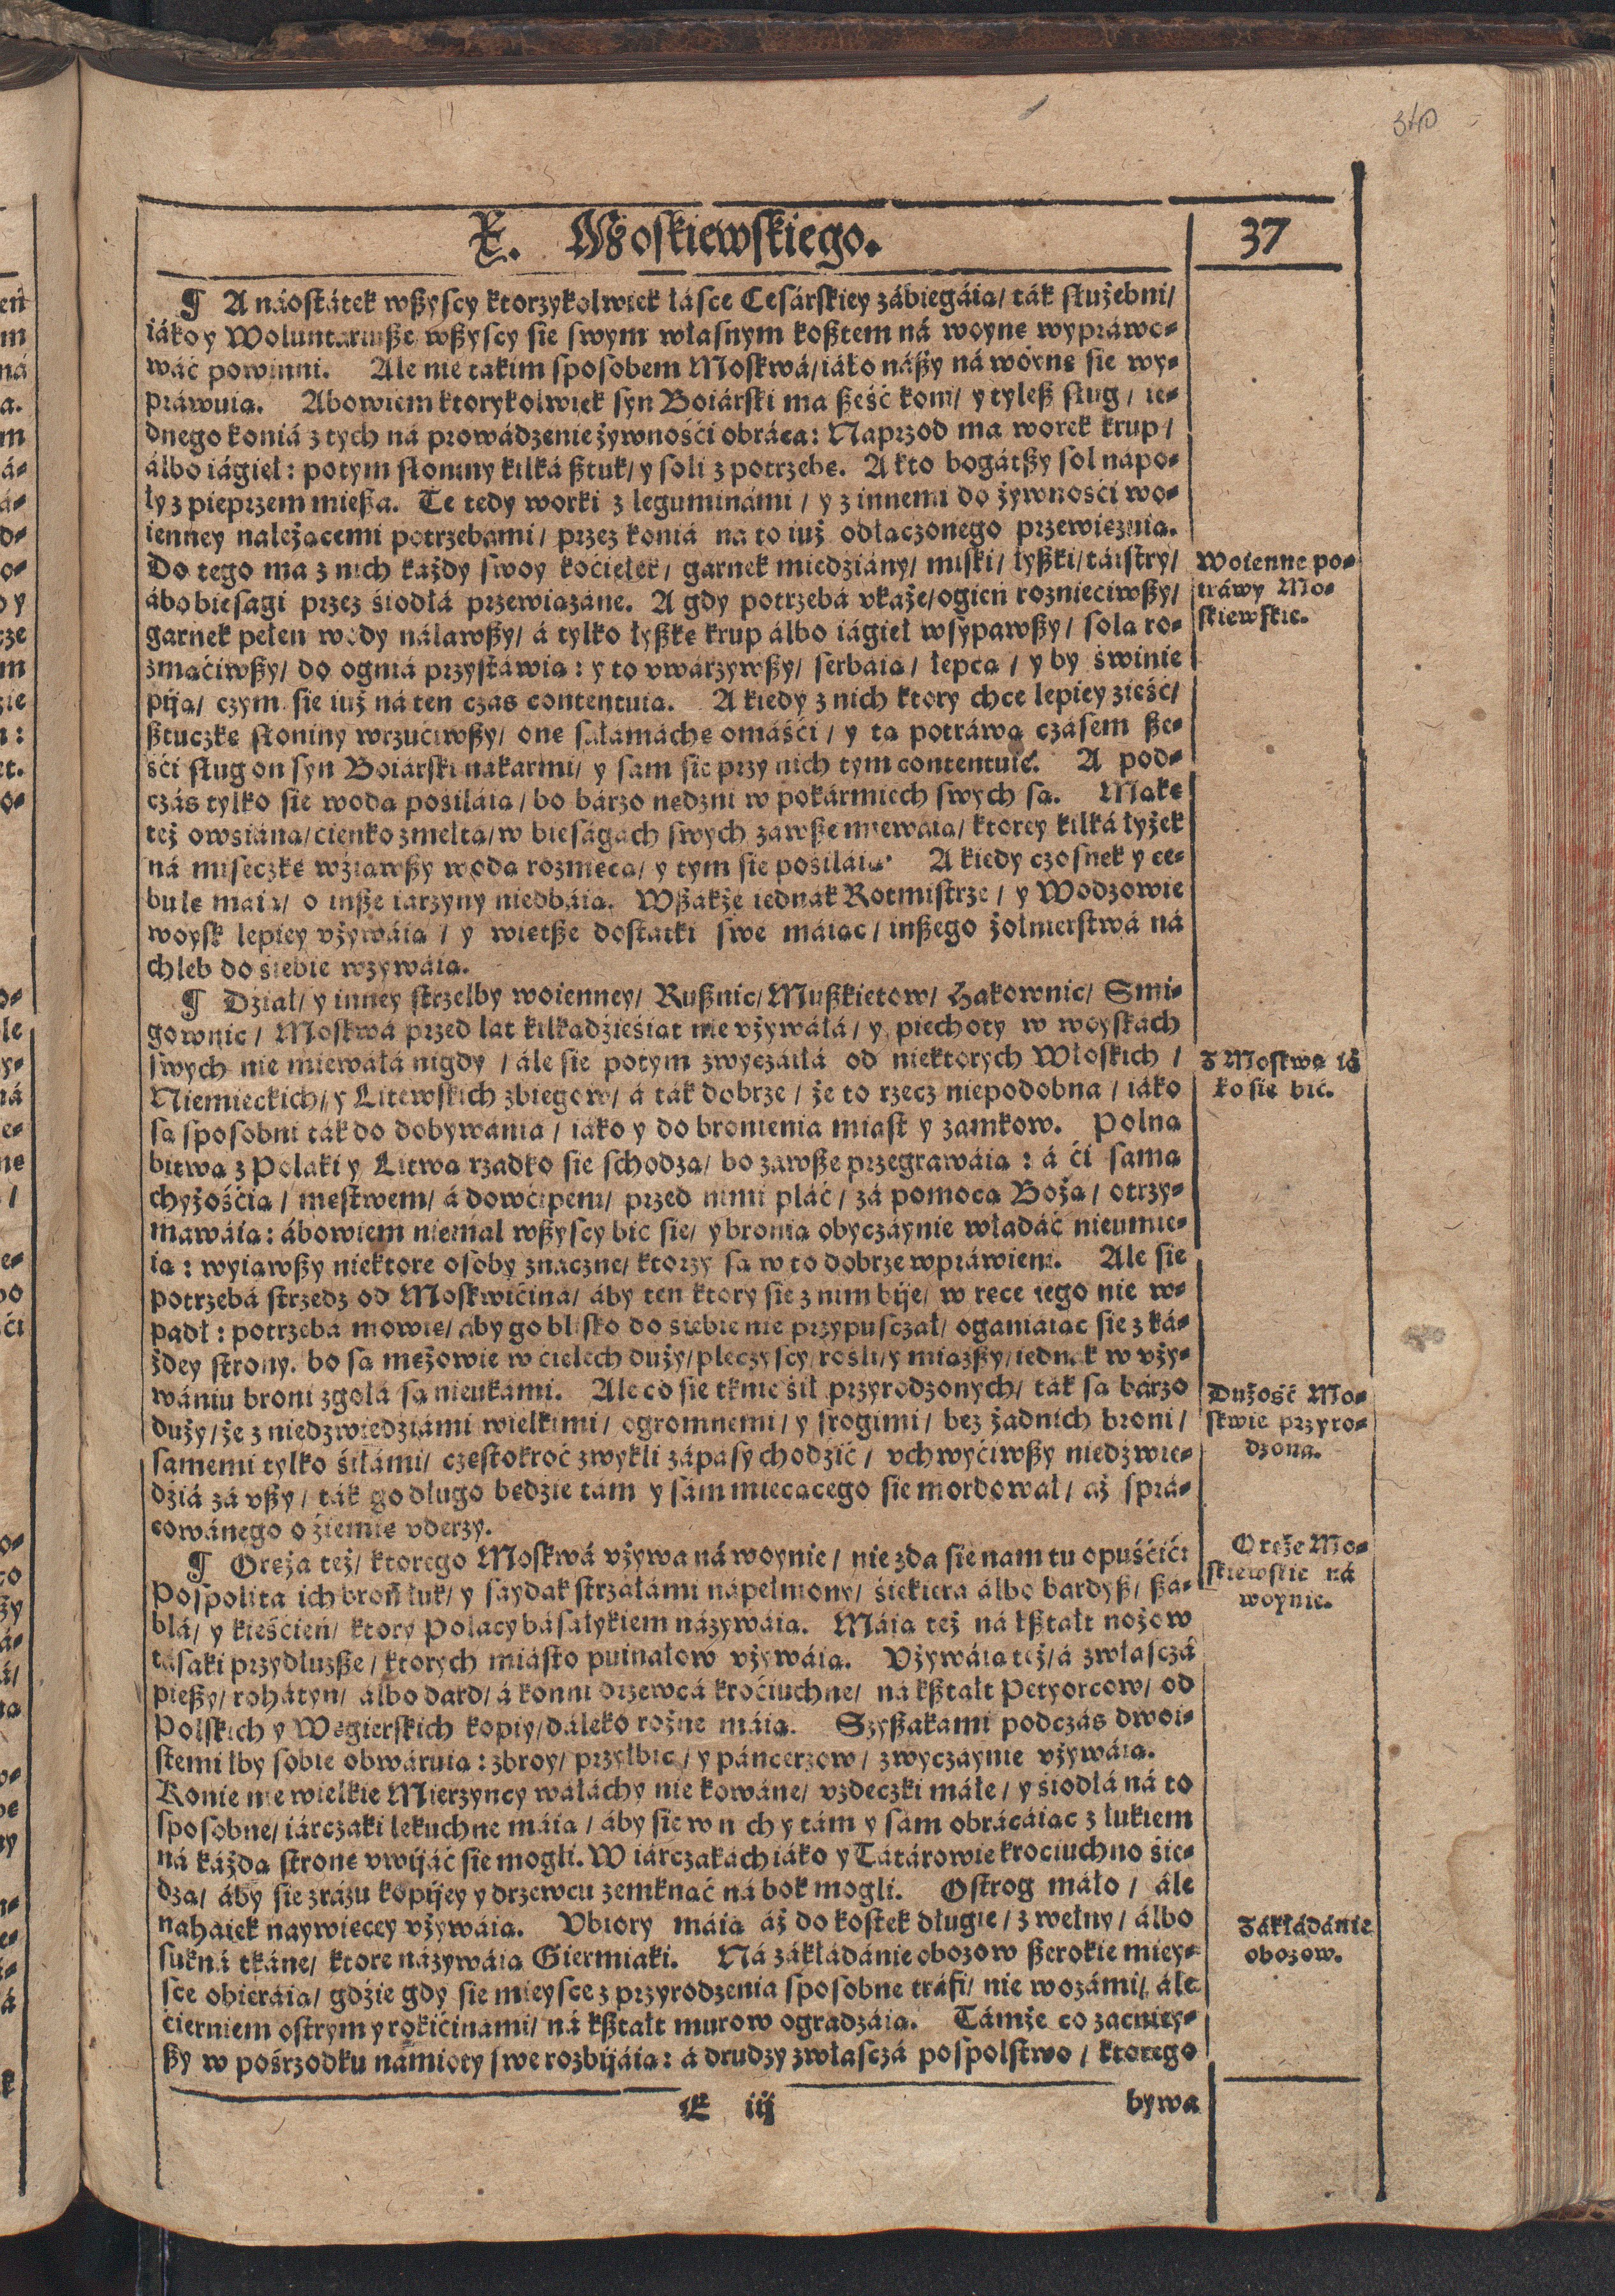 340
X. Moskiewskiego.
37
¶ A náostátek wßyscy ktorzykolwiek łásce Cesárskiey zábiegáią/ ták służebni/
iáko y Woluntariusze/ wßyscy sie swym własnym kosztem ná woynę wypráwo-
wáć powinni. Ale nie takim sposobem Moskwá/ iáko náßy ná woynę sie wy-
práwuią. Abowiem ktorykolwiek syn Boiárski ma ßeść koni/ y tyleß sług/ ie-
dnego koniá z tych ná prowádzenie żywnośći obráca: Naprzod ma worek krup/
álbo iágieł: potym słoniny kilká ßtuk/ y soli z potrzebę. A kto bogátßy sol nápo-
ły z pieprzem mießa. Te tedy worki z leguminámi/ y z innemi do żywnośći wo-
ienney należącemi potrzebami/ przez koniá na to iuż odłączonego przewieznią.
Do tego ma z nich każdy swoy koćiełek/ garnek miedziány/ miski/ łyßki/ táistry/
ábo biesagi przez śiodłá przewiązáne. A gdy potrzebá vkaże/ ogień roznieciwßy/
garnek pełen wody nálawßy/ á tylko łyßkę krup álbo iágieł wsypawßy/ solą ro-
zmaćiwßy/ do ogniá przystáwią: y to vwárzywßy/ serbáią/ łepcą/ y by świnie
piją/ czym sie iuż ná ten czas contentuią. A kiedy z nich ktory chce lepiey zieść/
ßtuczkę słoniny wrzućiwßy/ onę sałamáchę omáśći/ y tą potráwą czásem ße-
śći sług on syn Boiárski nakarmi/ y sam sie przy nich tym contentuie. A pod-
czás tylko sie wodą pośiláią/ bo bárzo nędzni w pokármiech swych są. Mąkę
też owsiáną/ ćienko zmełtą/ w bieságách swych záwße miewáią/ ktorey kilká łyżek
ná miseczkę wźiąwßy wodą rozmącą/ y tym sie pośiláią. A kiedy czosnek y ce-
bule máią/ o inße iárzyny niedbáią. Wßákże iednák Rotmistrze/ y Wodzowie
woysk lepiey vżywáią/ y więtße dostatki swe máiąc/ inßego żołnierstwá ná
chleb do śiebie wzywáią.
¶ Dział/ y inney strzelby woienney/ Rußnic/ Mußkietow/ Hakownic/ Smi-
gownic/ Moskwá przed lat kilkadźieśiąt nie vżywáłá/ y piechoty w woyskách
swych nie miewáłá nigdy/ ále sie potym zwyczáiłá od niektorych Włoskich/
Niemieckich/ y Litewskich zbiegow/ á ták dobrze/ że to rzecz niepodobna/ iáko
są sposobni ták do dobywánia/ iáko y do bronienia miast y zamkow. Polną
bitwą z Polaki y Litwą rzadko sie schodzą/ bo záwße przegrawáią: á ći samą
chyżośćią/ męstwem/ á dowćipem/ przed nimi pláć/ zá pomocą Bożą/ otrzy-
mawáią: ábowiem niemal wßyscy bić sie/ y bronią obyczáynie władáć nieumie-
ią: wyiąwßy niektore osoby znáczne/ ktorzy są w to dobrze wpráwieni. Ale sie
potrzebá strzedz od Moskwićiná/ áby ten ktory sie z nim bije/ w ręce iego nie w-
padł: potrzebá mowię/ áby go blisko do śiebie nie przypusczał/ oganiáiąc sie z ká-
żdey strony. bo są mężowie w ćiełech duży/ pleczyscy/ rośli/ y miążßy/ iednák w vży-
wániu broni zgołá są nieukámi. Ale co sie tknie śił przyrodzonych/ ták są bárzo
duży/ że z niedzwiedziámi wielkimi/ ogromnemi/ y srogimi/ bez żadnich broni/
samemi tylko śiłámi/ częstokroć zwykli zápásy chodźić/ vchwyćiwßy niedzwie-
dźiá zá vßy/ ták go długo będzie tám y sám miecącego sie mordował/ aż sprá-
cowánego o źiemię vderzy.
¶ Oręża też/ ktorego Moskwá vżywa ná woynie/ nie zda sie nam tu opuśćić:
Pospolita ich broń łuk/ y sáydak strzałámi nápełniony/ śiekiera álbo bardyß/ ßá-
blá/ y kieśćień/ ktory Polacy básałykiem názywáią. Máią też ná kßtałt nożow
tasaki przydłużße/ ktorych miásto puinałow vżywáią. Vżywáią też/ á zwłasczá
pießy/ rohátyn/ álbo dard/ á konni drzewcá kroćiuchne/ ná kßtałt Petyorcow/ od
Polskich y Węgierskich kopiy/ dáleko rożne máią. Szyßakami podczás dwoi-
stemi łby sobie obwáruią: zbroy/ przyłbic/ y páncerzow/ zwyczáynie vżywáią.
Konie nie wielkie Mierzyncy wáłáchy nie kowáne/ vzdeczki máłe/ y śiodłá ná to
sposobne/ iárczaki lekuchne máią/ áby sie w nich y tám y sám obrácáiąc z łukiem
ná káżdą stronę vwijáć sie mogli. W iárczakách iáko y Tátárowie krociuchno śie-
dzą/ áby sie zrázu kopijey y drzewcu zemknąć ná bok mogli. Ostrog máło/ ále
nahaiek naywięcey vżywáią. Vbiory máią áż do kostek długie/ z wełny/ álbo
sukná tkáne/ ktore názywáią Giermiaki. Ná zákłádánie obozow ßerokie miey-
sce obieráią/ gdźie gdy sie mieysce z przyrodzenia sposobne tráfi/ nie wozámi/ ále
ćierniem ostrym y rokićinámi/ ná kßtałt murow ogradzáią. Támże co zacniey-
ßy w pośrzodku námioty swe rozbijáią: á drudzy zwłasczá pospolstwo/ ktorego
E iij
bywa
Woienne po-
tráwy Mo-
skiewskie.
Z Moskwą iá
ko sie bić.
Dużość Mo-
skwie przyro-
dzona.
Oręże Mo-
skiewskie ná
woynie.
Zákłádánie
obozow.